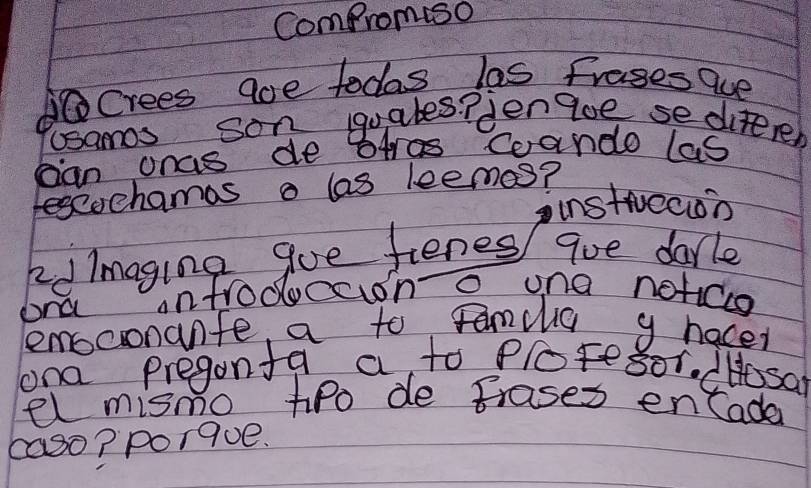 Compromiso
1) ¿Crees que todas las frases que
usamos son iguales? ¿en que se diferen
cian unas de otras cuando las
escuchamos o las leemos?
instrucción
2) Imagina que tienes que darle
una introducción o una noticia
emocionante, a tu familia y hacer
una pregunta a tu profesor. ¿Usar
el mismo tipo de frases en cada
caso? porque.